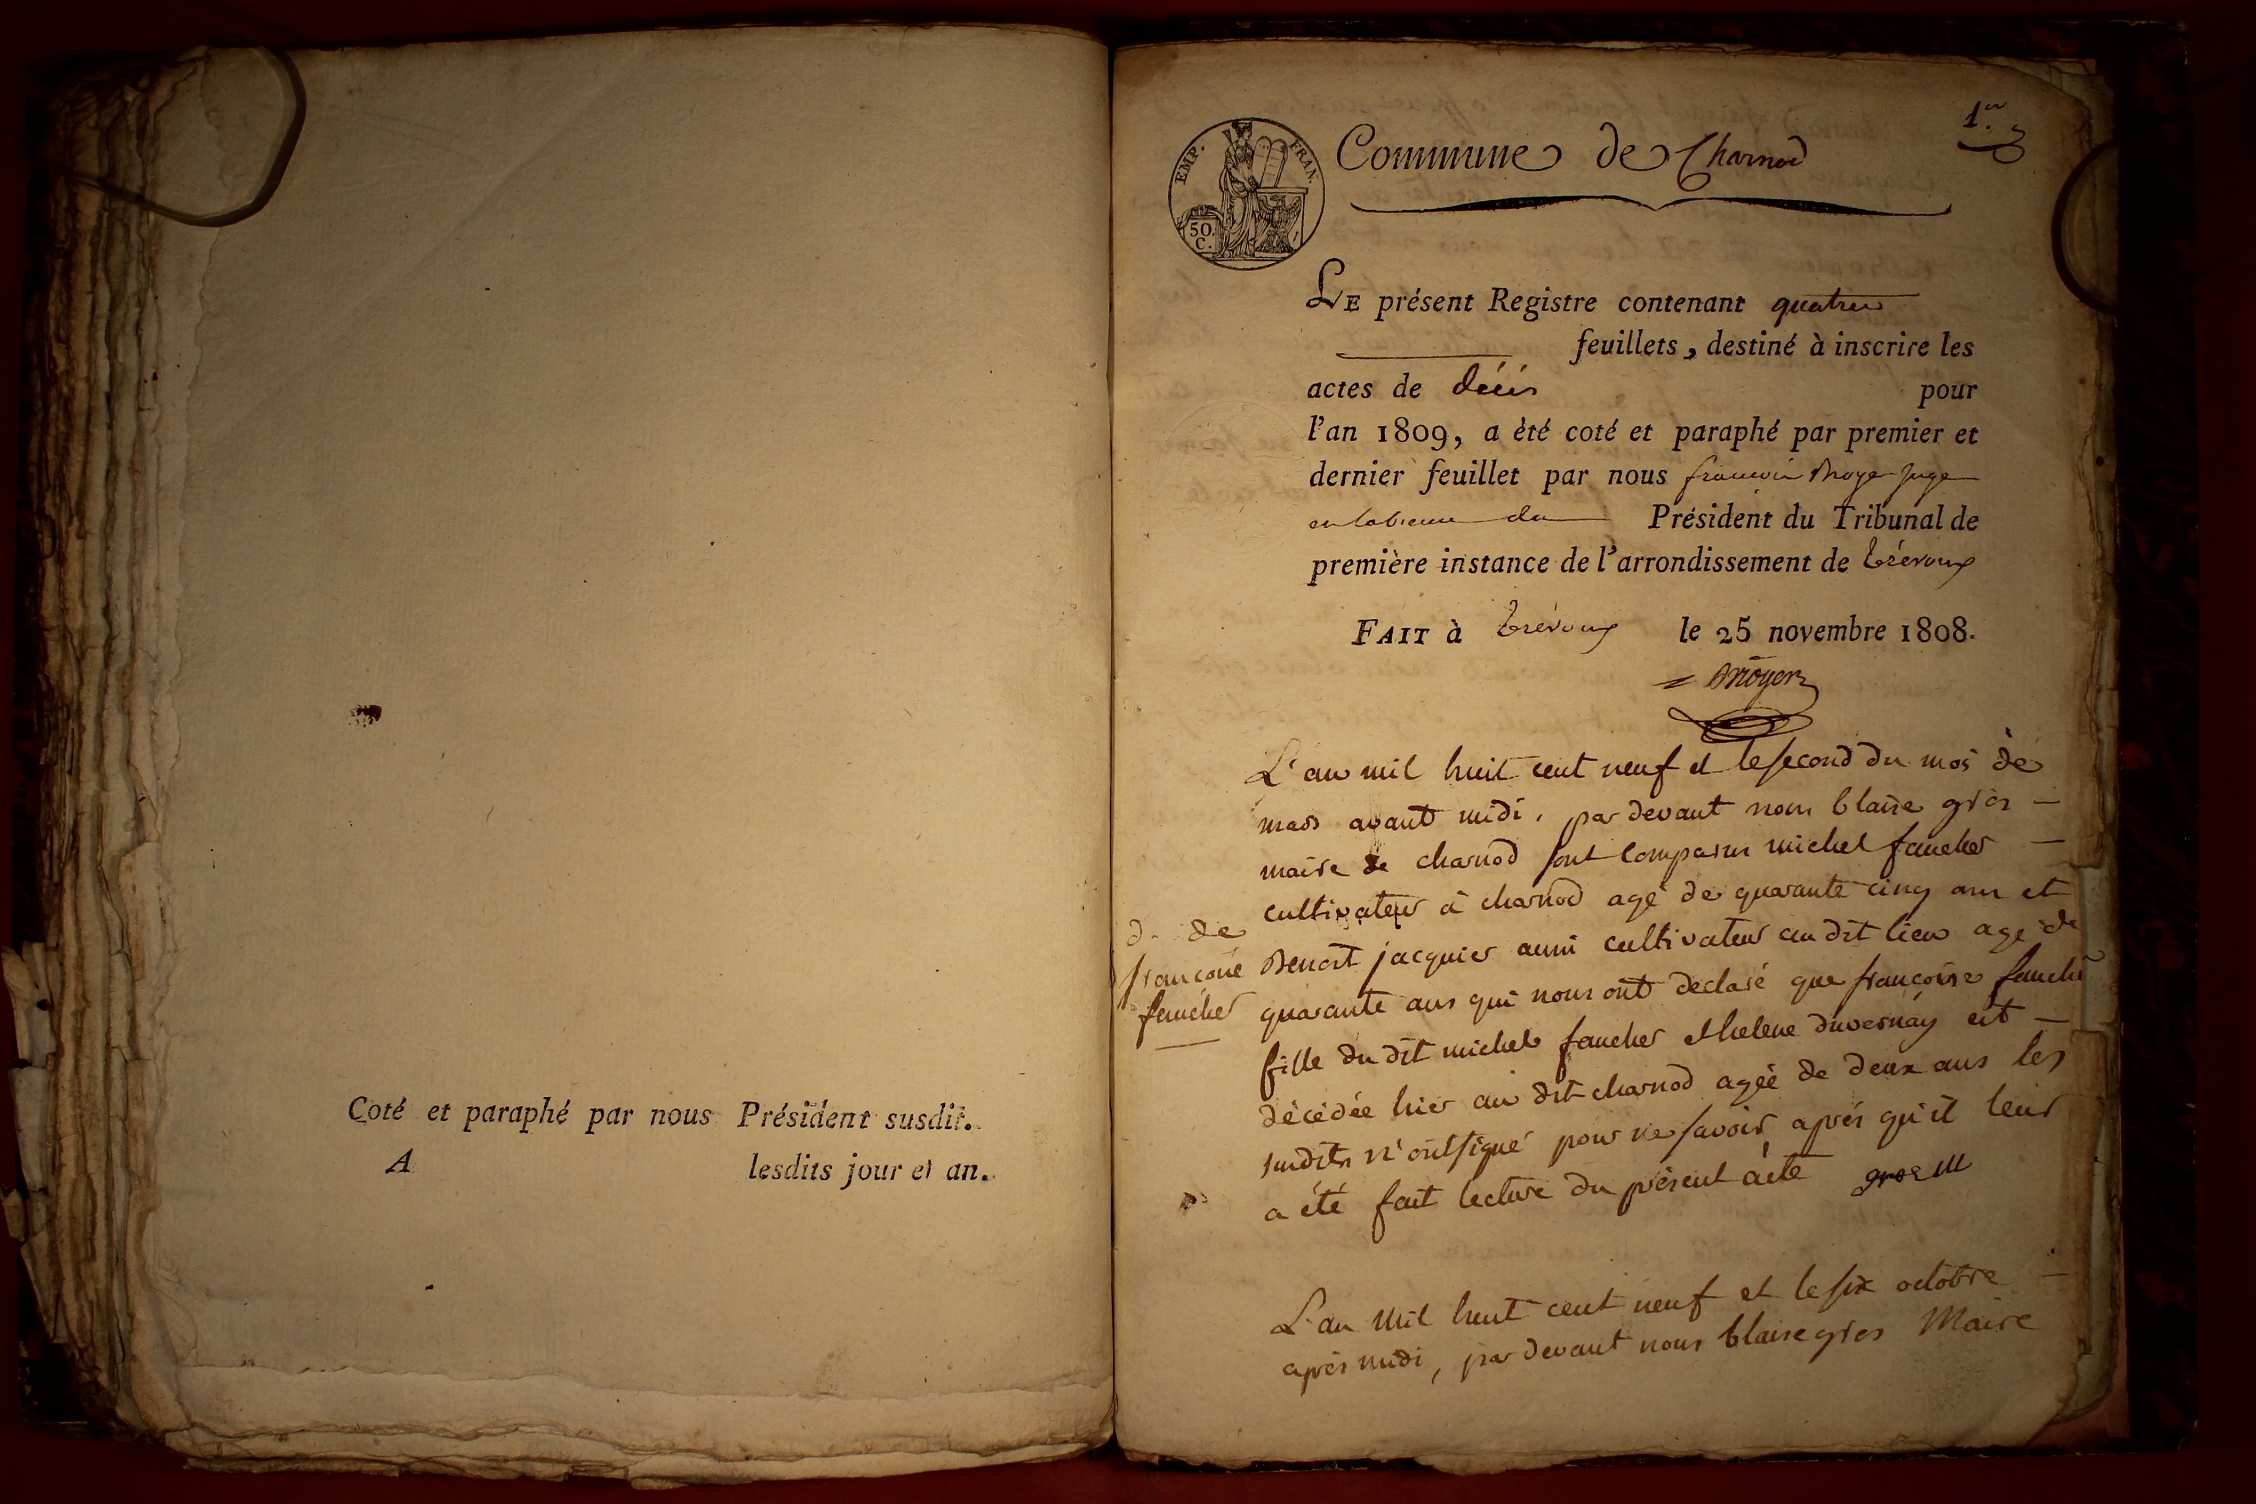 Coté et paraphé par nous Président susdit.
A lesdits jour et an.
1.er
EMP. FRAN.
50. C.
Commune de Charnod
LE présent Registre contenant quatre
feuillets, destiné à inscrire les
actes de décés pour
l'an 1809, a èté coté et paraphé par premier et
dernier feuillet par nous françois juge
du Président du Tribunal de
première instance de l'arrondissement de trévoux
FAIT à trévoux le 25 novembre 1808.
L'an mil huit cent neuf et le second du mois de
mars avant midi, par devant nous blaise gros
maire de charnod sont comparus michel faucher
cultivateur à charnod agé de quarante cinq ans et
d. de
françoise
faucher
Benoit jacquier aussi cultivateur au dit lieu agé de
quarante ans qui nous ont declaré que françoise fauche
fille du dit michel faucher et helene duvernay est
décédée hier au dit charnod agée de deux ans les
susdits n'ont signé pour ne savoir après qu'il leur
a été fait lecture du présent acte gros m
L'an mil huit cent neuf et le six octobre
après midi, par devant nous blaise gros Maire